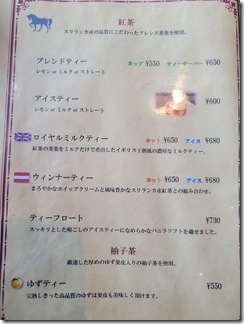 紅茶
スリランカ産の品質にこだわったブレンド茶葉を使用。
ブレンドティー ホット ¥550 ティーサーバー ¥650
レモン or ミルク or ストレート
アイスティー ¥600
レモン or ミルク or ストレート
ロイヤルミルクティー ホット ¥650 アイス ¥680
紅茶の茶葉をミルクだけで煮出したイギリス王朝風の濃厚なミルクティー。
ウィンナーティー ホット ¥650 アイス ¥680
まろやかなホイップクリームと風味豊かなスリランカ産紅茶との組み合わせ。
ティーフロート ¥730
スッキリとした喉ごしのアイスティーになめらかなバニラソフトを乗せました。
柚子茶
厳選した厚めのゆず果皮入りの柚子茶を使用。
ゆずティー ¥550
完熟しきった高品質のゆずは果皮も美味しく頂けます。